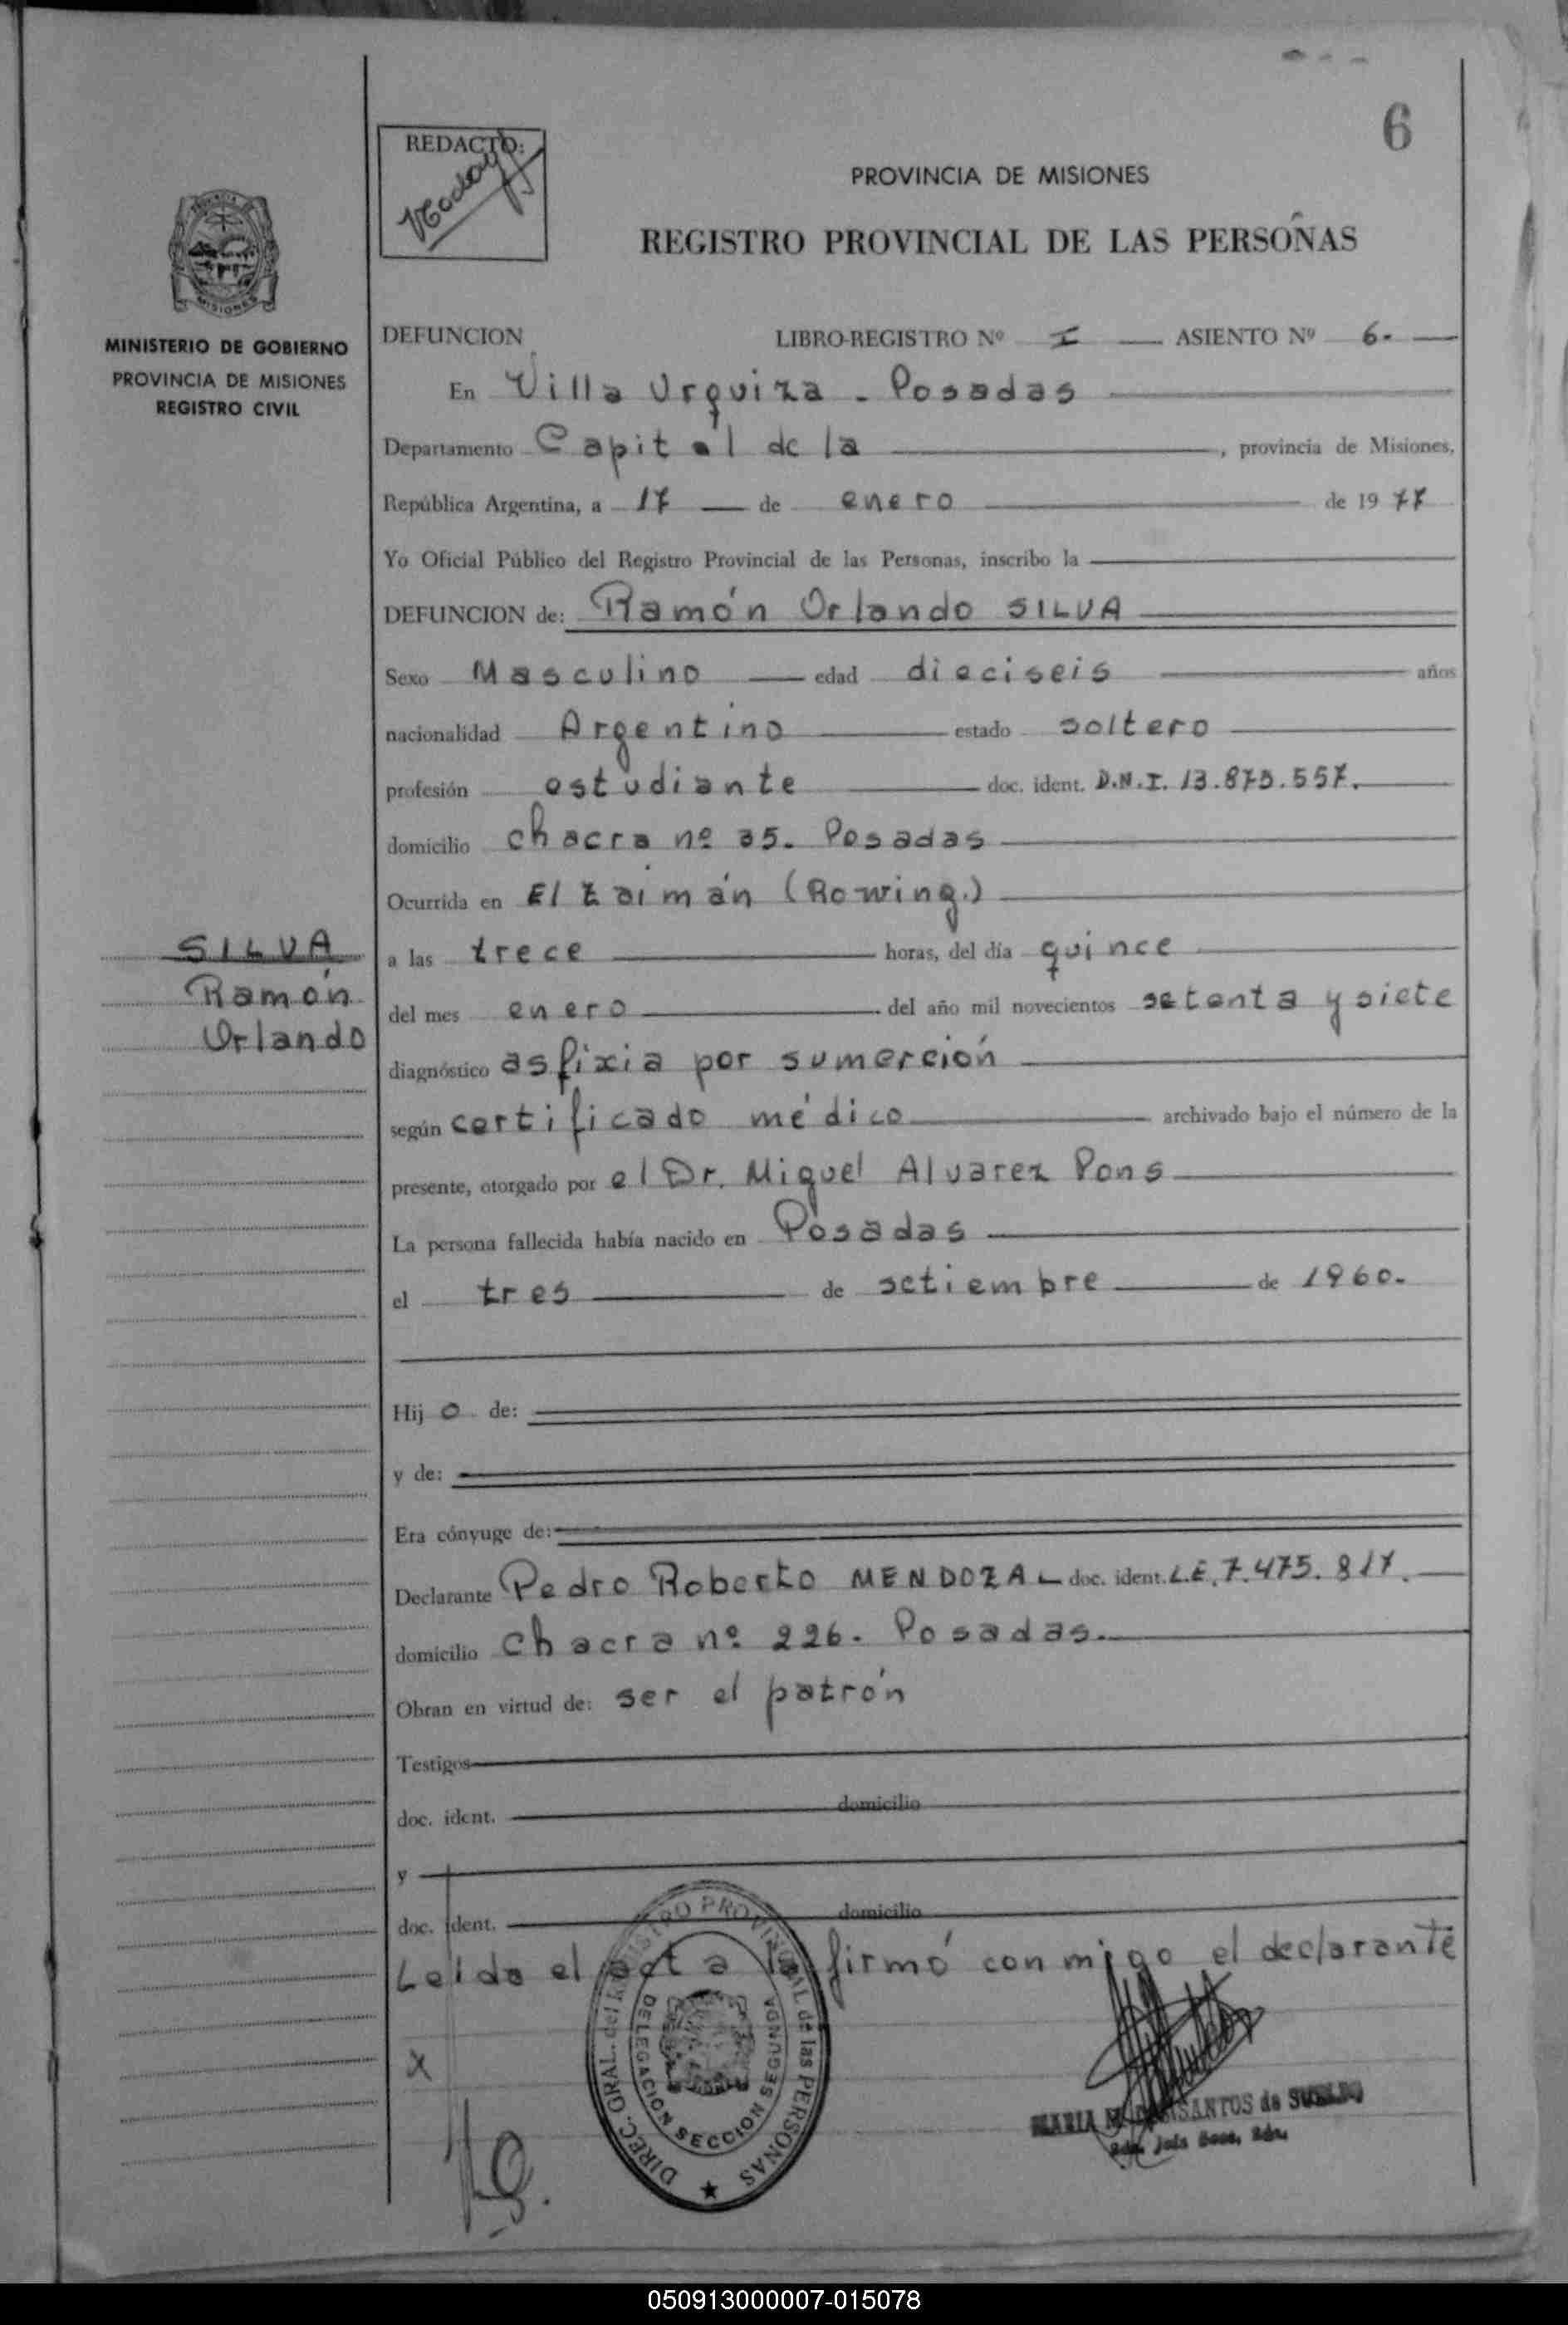 6
REDACTO:
PROVINCIA DE MISIONES
REGISTRO PROVINCIAL DE LAS PERSONAS
MISIONES
MINISTERIO DE GOBIERNO
PROVINCIA DE MISIONES
REGISTRO CIVIL
DEFUNCION LIBRO-REGISTRO Nº I ASIENTO Nº 6.
En Villa Urquiza - Posadas
Departamento Capital de la , provincia de Misiones,
República Argentina, a 17 de enero de 1977
Yo Oficial Público del Registro Provincial de las Personas, inscribo la
DEFUNCION de: Ramón Orlando SILVA
Sexo Masculino edad dieciseis años
nacionalidad Argentino estado soltero
profesión estudiante doc. ident. D.N.I. 13.873.557.
domicilio chacra nº 35. Posadas
Ocurrida en El Zaimán (Rowing.)
SILVA
Ramón
Orlando
a las trece horas, del día quince
del mes enero del año mil novecientos setenta y siete
diagnóstico asfixia por sumerción
según certificado médico archivado bajo el número de la
presente, otorgado por el Dr. Miguel Alvarez Pons
La persona fallecida había nacido en Posadas
el tres de setiembre de 1960.
Hij o de:
y de:
Era cónyuge de:
Declarante Pedro Roberto MENDOZA doc. ident. L.E. 7.475.817.
domicilio chacra nº 226. Posadas.
Obran en virtud de: ser el patrón
Testigos
doc. ident. domicilio
y
doc. ident. domicilio
Leida el acta la firmó conmigo el declarante
x
DIREC. GRAL. del REGISTRO PROVINCIAL de las PERSONAS
DELEGACION SECCION SEGUNDA
MARIA SANTOS de
050913000007-015078